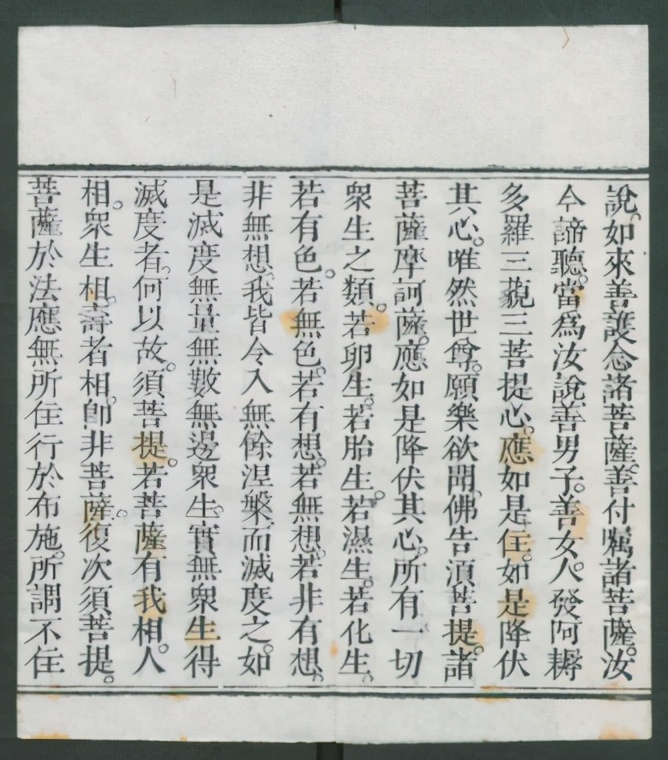 說。如來善護念諸菩薩。善付囑諸菩薩。汝
今諦聽。當爲汝說善男子。善女人。發阿耨
多羅三藐三菩提心。應如是住。如是降伏
其心。唯然世尊。願樂欲聞。佛告須菩提。諸
菩薩摩訶薩。應如是降伏其心。所有一切
衆生之類。若卵生。若胎生。若濕生。若化生。
若有色。若無色。若有想。若無想。若非有想。
非無想。我皆令入無餘涅槃而滅度之。如
是滅度無量無數無邊衆生。實無衆生得
滅度者。何以故。須菩提。若菩薩有我相。人
相。衆生相。壽者相。卽非菩薩。復次須菩提。
菩薩於法應無所住行於布施。所謂不住